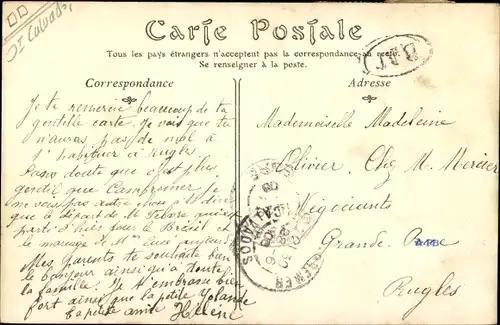 It Calvados
Carte Postale
Tous les pays étrangers n'acceptent pas la correspondance au recto.
Se renseigner à la poste.
Correspondance
Je te remercie beaucoup de ta
gentille carte. Je vois que tu
n'auras pas de mal à
t'habituer à Rugles.
Sans doute que c'est plus
gentil que Campremer je
ne vois pas autre chose à te dire
que le départ de M.
parti d'hier pour le Brésil et
le mariage de Mlle
Mes parents te souhaite bien
le bonjour ainsi qu'a toute
la famille. Je t'embrasse bien
fort ainsi que la petite Yolande
ta petite amie Hélène
B.A.T
Adresse
Mademoiselle Madeleine
Olivier. Chez M. Mercier
Négociants
Grande Rue
Rugles
CALVADOS